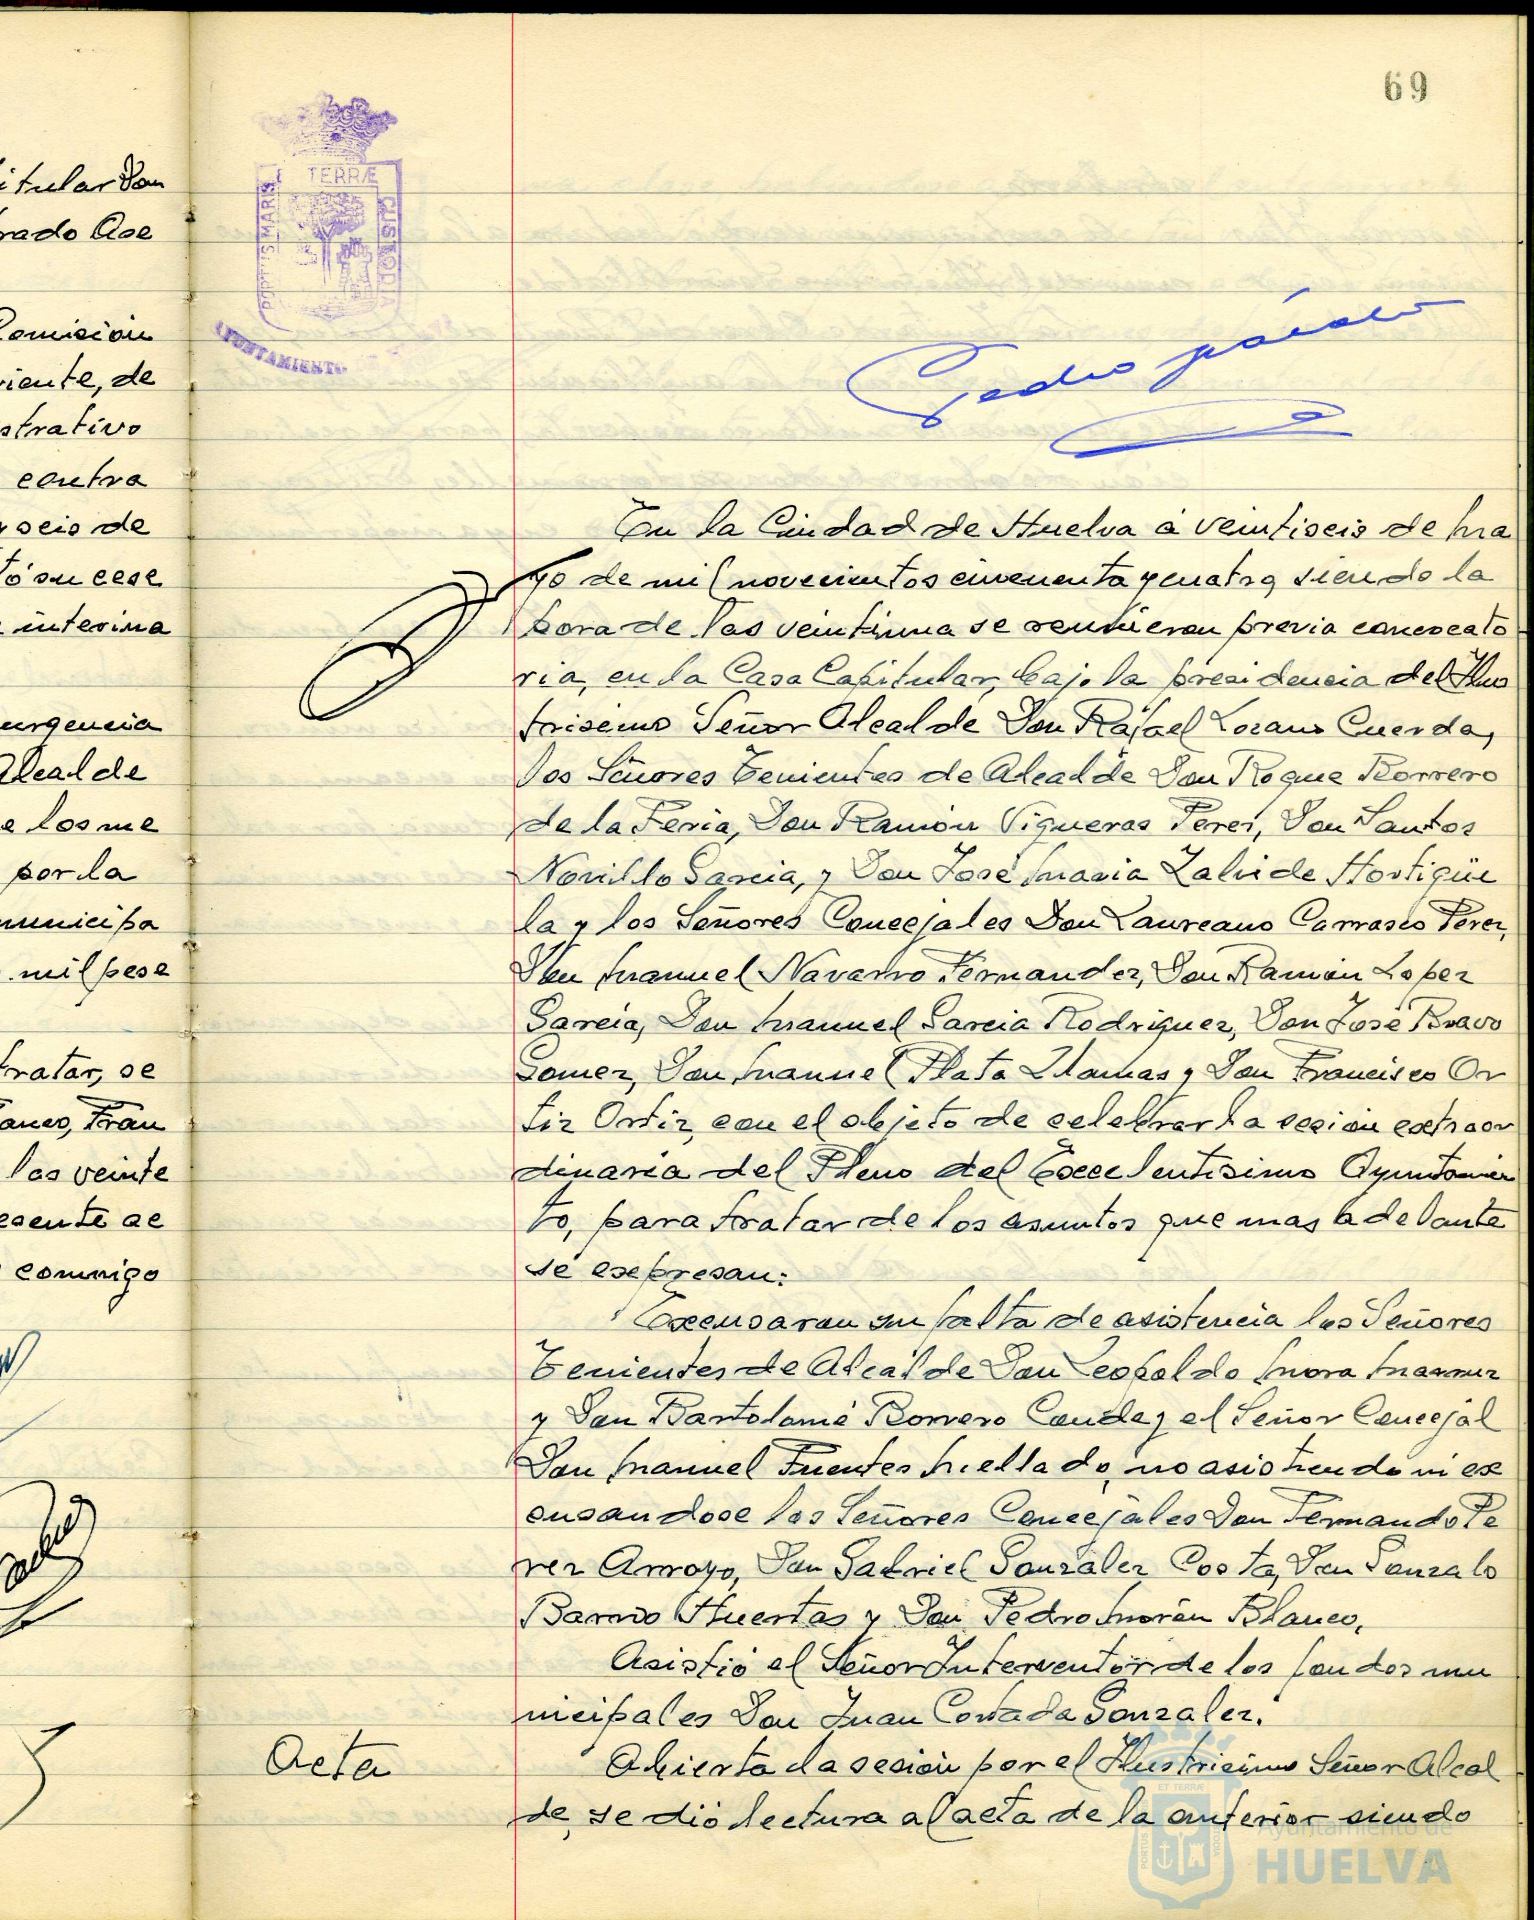 69
itular Don
rado Ase
Comisión
viente, de
strativo
contra
seis de
tó su cese
interina
urgencia
Alcalde
e los me
por la
municipa
mil pese
tratar, se
anco, Fran
las veinte
esente ac
conmigo
PORTUS MARIS ET TERRÆ CUSTODIA
AYUNTAMIENTO DE
Pedro
En la Ciudad de Huelva á veintiseis de ma
yo de mil novecientos cincuenta y cuatro, siendo la
hora de las veintiuna se reunieron previa convocato
ria, en la Casa Capitular, bajo la presidencia del Ilus
trisimo Señor Alcalde Don Rafael Lozano Cuerda,
los Señores Tenientes de Alcalde Don Roque Borrero
de la Feria, Don Ramón Vigueras Perez, Don Santos
Novillo Garcia, y Don José Maria Zalvide Hortigüe
la y los Señores Concejales Don Laureano Carrasco Perez,
Don Manuel Navarro Fernandez, Don Ramón Lopez
Garcia, Don Manuel Garcia Rodriguez, Don José Bravo
Gomez, Don Manuel Plata Llamas y Don Francisco Or
tiz Ortiz, con el objeto de celebrar la sesión extraor
dinaria del Pleno del Excelentisimo Ayuntamien
to, para tratar de los asuntos que mas adelante
se expresan:
Excusaron su falta de asistencia los Señores
Tenientes de Alcalde Don Leopoldo Mora
y Don Bartolomé Borrero Conde y el Señor Concejal
Don Manuel Fuentes Mellado, no asistiendo ni ex
cusandose los Señores Concejales Don Fernando Pe
rez Arroyo, Don Gabriel González Costa, Don Gonzalo
Barrio Huertas y Don Pedro Morón Blanco.
Asistió el Señor Interventor de los fondos mu
nicipales Don Juan Cortada Gonzalez.
Acta
Abierta la sesión por el Ilustrisimo Señor Alcal
de, se dió lectura al acta de la anterior siendo
Ayuntamiento de
HUELVA